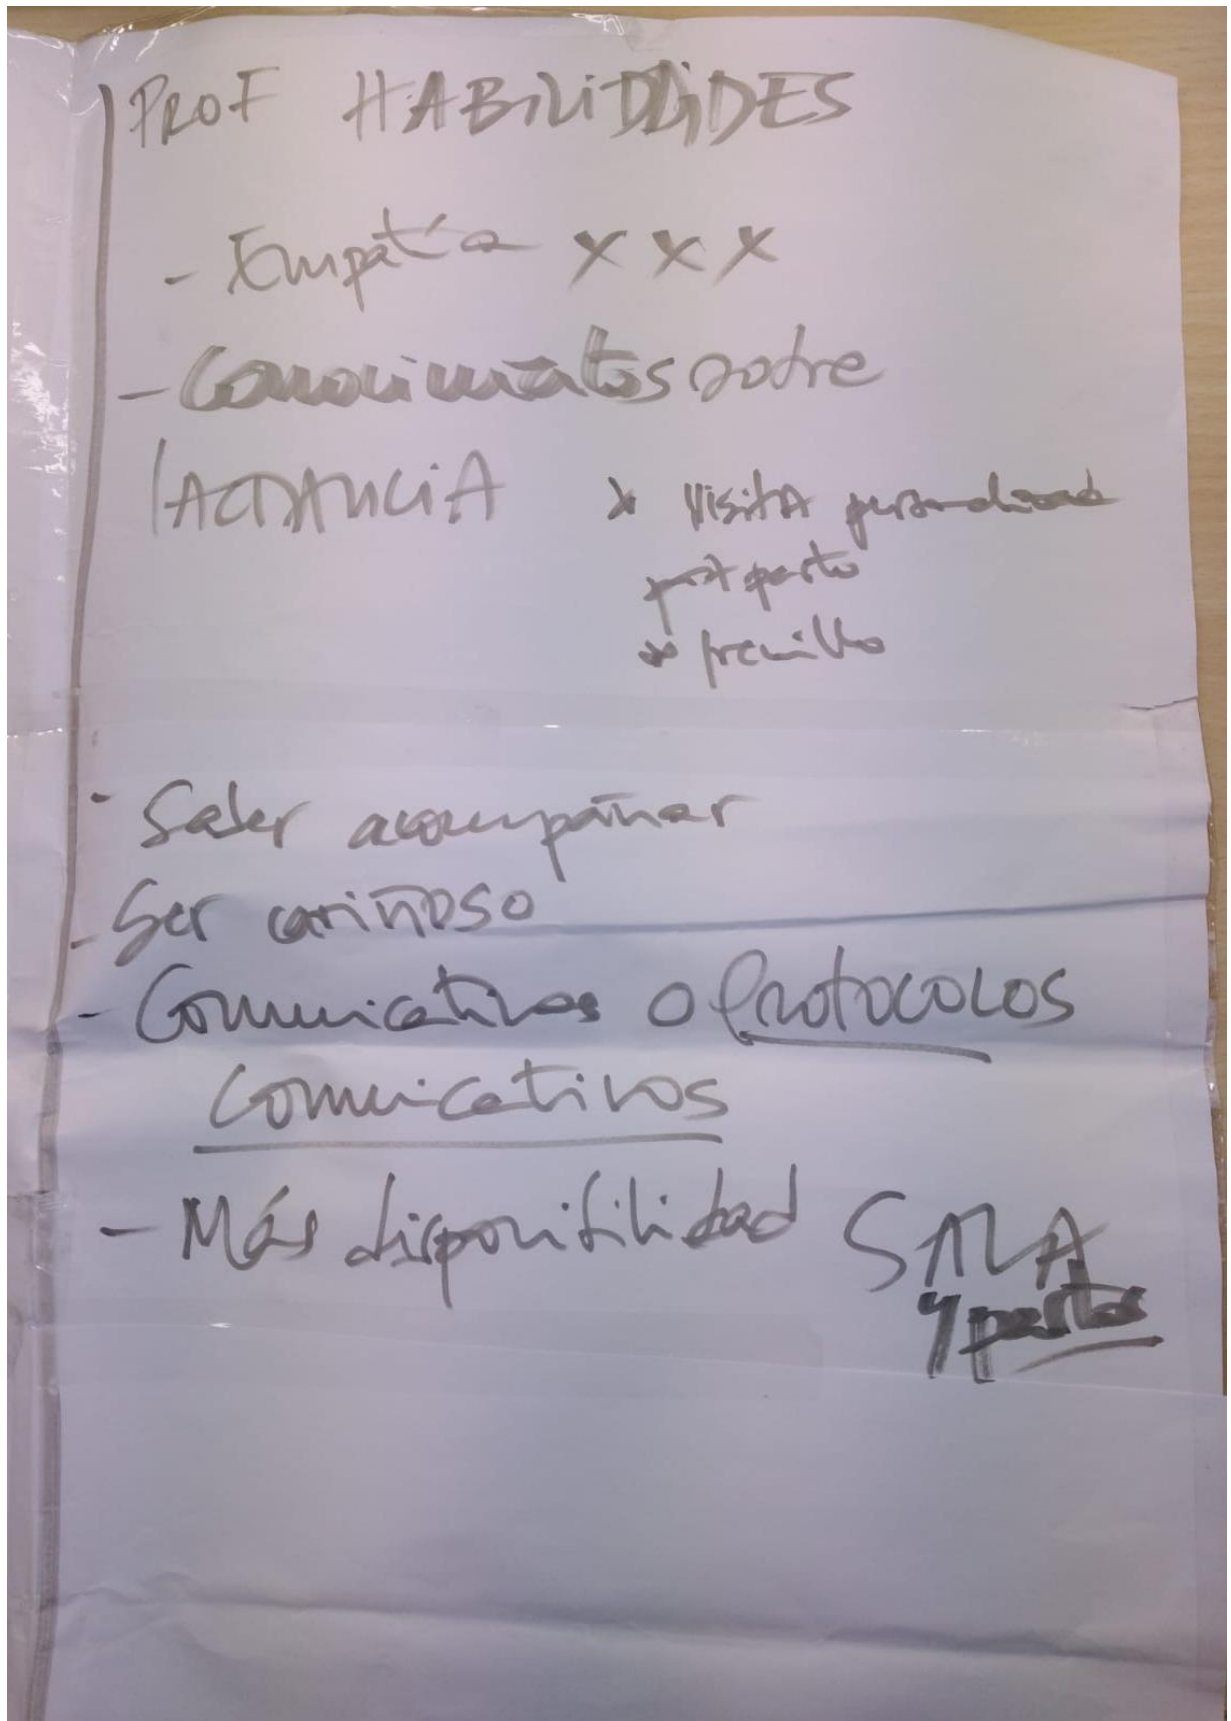 PROF HABILIDADES
- Empatía x x x
- Conocimientos sobre
lACTANCiA x Visita personalizada
post parto
x frenillo
- Saber acompañar
- Ser cariñoso
- Comunicativas o Protocolos
comunicativos
- Más disponibilidad SALA
y partos